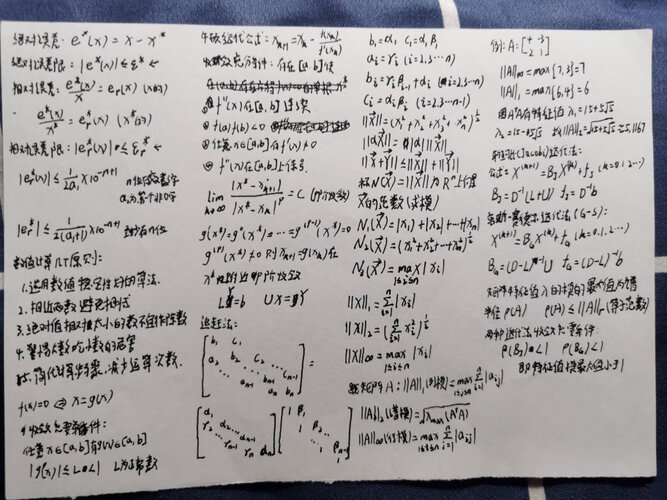 绝对误差: e*(x) = x - x*
绝对误差限: |e*(x)| ≤ ε*
相对误差: e*(x)/x = e_r(x) (x的)
e*(x)/x* = e_r*(x) (x*的)
相对误差限: |e_r*(x)| ≤ ε_r*
|e_r*(x)| ≤ 1/(2a₁) × 10^(-n+1) n位有效数字
a₁为第一个非0字
|e_r*| ≤ 1/(2(a₁+1)) × 10^(-n+1) 至少有n位
数值计算几个原则:
1. 选用数值稳定性好的算法.
2. 相近两数避免相减
3. 绝对值相对太小的数不宜作除数
4. 警惕大数吃小数的危害
5. 简化计算步骤, 减少运算次数.
f(x)=0 ⇔ x=g(x)
收敛充要条件:
任意x∈[a,b]有g(x)∈[a,b]
|g'(x)| ≤ L < 1 L为正常数
牛顿迭代公式: x_{k+1} = x_k - f(x_k)/f'(x_k)
收敛充分条件: 存在[a,b]使
① f''(x)在[a,b]连续
② f(a)f(b)<0
③ 任意x∈[a,b]有f'(x)≠0
④ f''(x)在[a,b]上保号.
lim k→∞ |x* - x_{k+1}| / |x* - x_k|^p = C (p阶收敛)
g'(x*) = g''(x*) = … = g^(p-1)(x*) = 0
g^(p)(x*) ≠ 0 则 x_{k+1} = g(x_k)在
x*附近p阶收敛
Ly=b Ux=y
追赶法:
[b₁ c₁
a₂ b₂ c₂
⋱ ⋱ c_{n-1}
a_n b_n] =
[α₁
γ₂ α₂
⋱ ⋱
γ_n α_n] [1 β₁
1 β₂
⋱ β_{n-1}
1]
b₁=α₁ c₁=α₁β₁
a_i=γ_i (i=2,3…n)
b_i=γ_iβ_{i-1}+α_i (i=2,3…n)
c_i=α_iβ_i (i=2,3…n-1)
||X|| = (x₁²+x₂²+x₃²+…x_n²)^(1/2)
||αX|| = |α| ||X||
||X+Y|| ≤ ||X||+||Y||
称N(X)=||X||为Rⁿ上向量
X的范数(或模)
N₁(X)=|x₁|+|x₂|+…+|x_n|
N₂(X)=(x₁²+x₂²+…+x_n²)^(1/2)
N₃(X)= max 1≤i≤n |x_i|
||X||₁ = Σ i=1 n |x_i|
||X||₂ = (Σ i=1 n x_i²)^(1/2)
||X||∞ = max 1≤i≤n |x_i|
矩阵A: ||A||₁(列模)= max 1≤j≤n Σ i=1 n |a_ij|
||A||₂(谱模)=√λmax(AᵀA)
||A||∞(行模)= max 1≤i≤n Σ j=1 n |a_ij|
例: A: [4 -3
2 1]
||A||∞ = max{7,3}=7
||A||₁ = max{6,4}=6
因AᵀA有特征值 λ₁=15+5√5
λ₂=15-5√5 故||A||₂=√(15+5√5)≈5.1167
雅可比(Jacobi)迭代法:
公式: X^(k+1)=B_J X^(k)+f_J (k=0,1,2…)
B_J=D⁻¹(L+U) f_J=D⁻¹b
高斯-赛德尔迭代法(G-S):
X^(k+1)=B_G X^(k)+f_G (k=0,1,2…)
B_G=(D-L)⁻¹U f_G=(D-L)⁻¹b
矩阵特征值λ的模的最大值为谱
半径ρ(A) ρ(A)≤||A||_r (算子范数)
两种迭代法收敛充要条件:
ρ(B_J)<1 ρ(B_G)<1
即特征值模最大值小于1